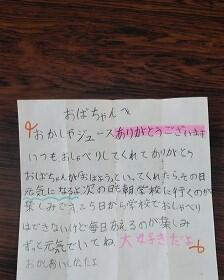 おばちゃんへ
おかしやジュースありがとうございます
いつもおしゃべりしてくれてありがとう
おばちゃんが「おはよう」といってくれたらその日
元気になるよ次の日朝学校に行くのが
楽しみでう今日から学校でおしゃべり
はできないけど毎日あえるのが楽しみ
ずっと元気でいてね大好きだよ
おかしおいしかったよ